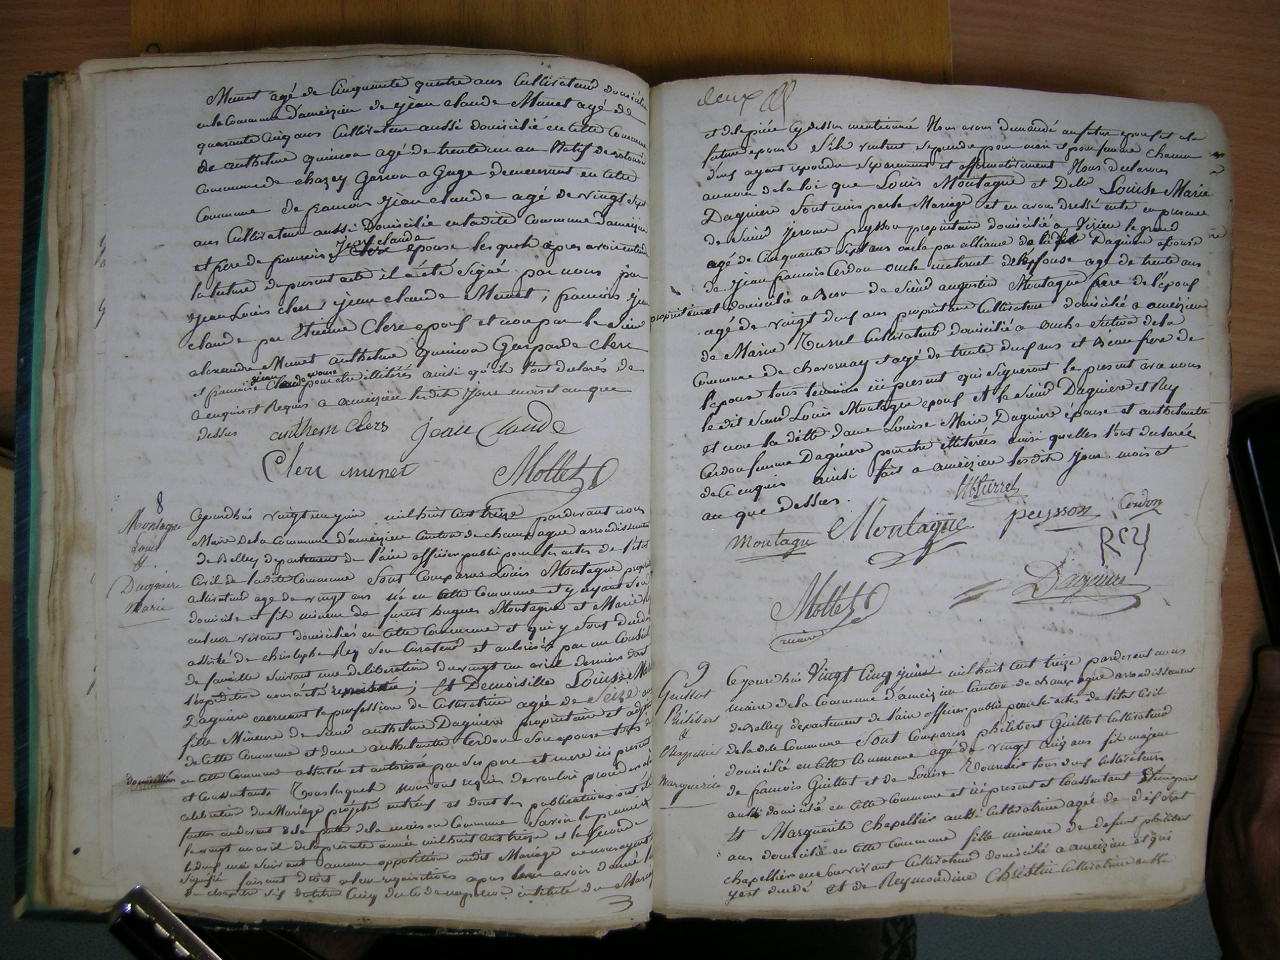 Munet agé de Cinquante quatre ans Cultivateur domicilié
en la Commune d'ameizieu de jean claude Munet agé de
quarante Cinq ans Cultivateur aussi domicilié en cette Commune
de anthelme quinson agé de trente un an Natif de
Commune de chazey garcon a Gage demeurant en cette
Commune de francois jean claude agé de vingt sept
ans Cultivateur aussi Domicilié en ladite Commune d'ameizieu
et frere de francois jean claude epouse lesquels apres avoir entendu
la lecture du present acte il a été signé par nous par
jean Louis clerc jean claude Munet, francois jean
claude par Etienne Clerc epoux et non par le sieur
alexandre Munet anthelme quinson Gasparde Clerc
et francoise jean claude pour etre illiteres ainsi qu'ils l'ont declarés de
a enquis et Requis a ameizieu lesdit jour mois et an que
dessus anthelm Clerc jean Claude
Clerc munet Mollet
8
Montagne
Louis
&
Daguiere
Marie
Cejourdhui vingt un juin mil huit cent treize pardevant nous
Maire de la Commune d'ameizieu Canton de champagne arrondissement
de Belley departement de l'ain officier public pour les actes de l'état
Civil de ladite Commune Sont Comparus Louis Montagne
Cultivateur agé de vingt ans né en cette Commune et y ayant son
domicile et fils mineur de feu hugues Montagne et Marie
domiciliés en cette Commune et qui y sont
assisté de christophe Rey son Curateur et autorisés par un Conseil
de famille suivant une deliberation du vingt un avril dernier dont
l'expedition nous a été ; Et Demoiselle Louise Marie
Daguiere exercant la profession de Cultivatrice agée de Seize ans
fille Mineure de Sieur anthelme Daguiere proprietaire et
de cette Commune et dame anthelmette Cerdon son epouse tous
domiciliés en cette Commune assistée et autorisée par ses pere et mere ici presents
et Consentants lesquels nous ont requis de vouloir proceder a la
celebration du Mariage projeté entr'eux et dont les publications ont été
faites audevant de la porte de la maison Commune Savoir la premiere
le vingt avril de la presente année mil huit cent treize et le second
du mois suivant aucune opposition audit Mariage ne nous ayant été
Signifié faisant droit a leur requisitions apres leur avoir donné
du chapitre six du titre Cinq du Code napoleon intitulé du Mariage
deux
et de la piece cy dessus mentionnée Nous avons demandé au futur epoux et a la
future epouse s'ils veulent se prendre pour mari et pour femme chacun
d'eux ayant repondu separement et affirmativement Nous declarons
au nom de la loi que Louis Montagne et Delle Louise Marie
Daguiere Sont unis par le Mariage et en avons dressé acte en presence
de Sieur jerome peysson proprietaire domicilié a Virieu le grand
agé de Cinquante Sept ans oncle par alliance de la Daguiere epouse
de jean francois Cerdon oncle maternel de l'epouse agé de trente ans
proprietaire domicilié a Beon de Sieur augustin Montagne frere de l'epoux
agé de vingt deux ans proprietaire Cultivateur domicilié a ameizieu
de Marin Turrel Cultivateur domicilié a ouche section de la
Commune de charonnay et agé de trente deux ans et Beau frere de
l'epoux tous temoins ici present qui signeront le present avec nous
ledit Sieur Louis Montagne epoux et le Sieur Daguiere et Rey
et non la ditte dame Louise Marie Daguiere epouse et anthelmette
Cerdon femme Daguiere pour etre illiterées ainsi quelles l'ont declarée
de ce enquis ainsi fait a ameizieu lesdits jour mois et
an que dessus. Turrel
Montagne Montagne peysson Cerdon
Rey
Mollet Daguiere
maire
9
Guillot
Philibert
&
Chapellier
Marguerite
Cejourdhui Vingt Cinq juin mil huit cent treize pardevant nous
maire de la Commune d'ameizieu Canton de champagne arrondissement
de Belley département de l'ain officier public pour les actes de l'état Civil
de ladite Commune Sont Comparus philibert Guillot Cultivateur
domicilié en cette Commune agé de vingt cinq ans fils majeur
de francois Guillot et de Louise tous deux Cultivateurs
aussi domicilié en cette Commune et ici present et Consentant
Et Marguerite Chapellier aussi Cultivatrice agée de dix sept
ans domiciliée en cette Commune fille mineure de defunt philibert
chapellier en son vivant Cultivateur domicilié a ameizieu et qui
y est decedé et de Reymondine Chrestin Cultivatrice